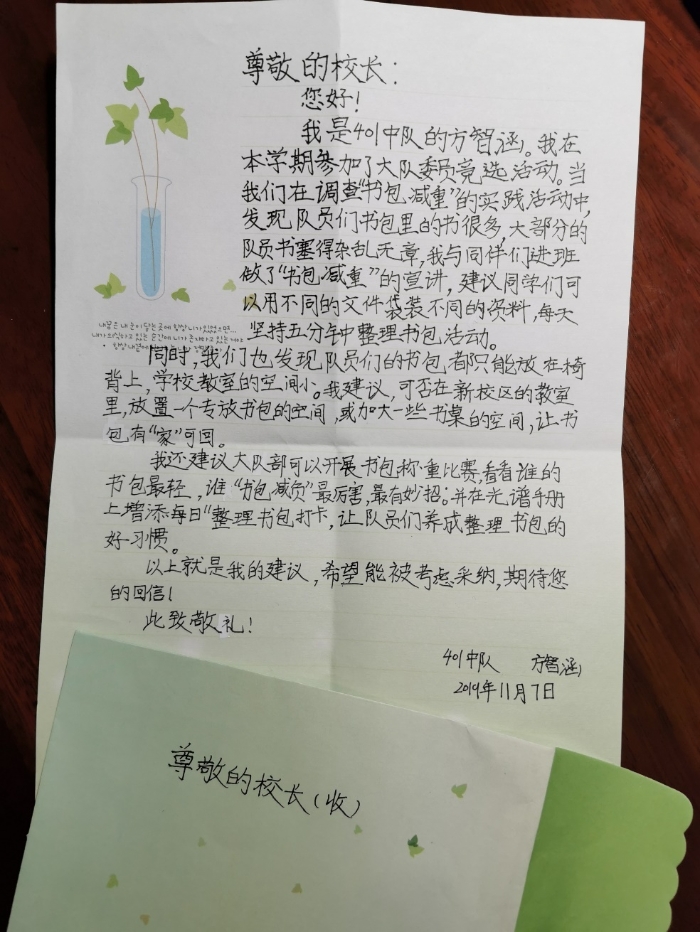 尊敬的校长：
您好！
我是401中队的方智涵。我在
本学期参加了大队委员竞选活动。当
我们在调查“书包减重”的实践活动中，
发现队员们书包里的书很多，大部分的
队员书塞得杂乱无章，我与同伴们进班
做了“书包减重”的宣讲，建议同学们可
以用不同的文件袋装不同的资料，每天
坚持五分钟整理书包活动。
同时，我们也发现队员们的书包都只能放在椅
背上，学校教室的空间小。我建议，可否在新校区的教室
里，放置一个专放书包的空间，或加大一些书桌的空间，让书
包有“家”可回。
我还建议大队部可以开展书包称重比赛，看看谁的
书包最轻，谁“书包减负”最厉害，最有妙招；并在光谱手册
上增添每日“整理书包打卡，让队员们养成整理书包的
好习惯。
以上就是我的建议，希望能被考虑采纳，期待您
的回信！
此致敬礼！
401中队 方智涵
2019年11月7日
尊敬的校长（收）